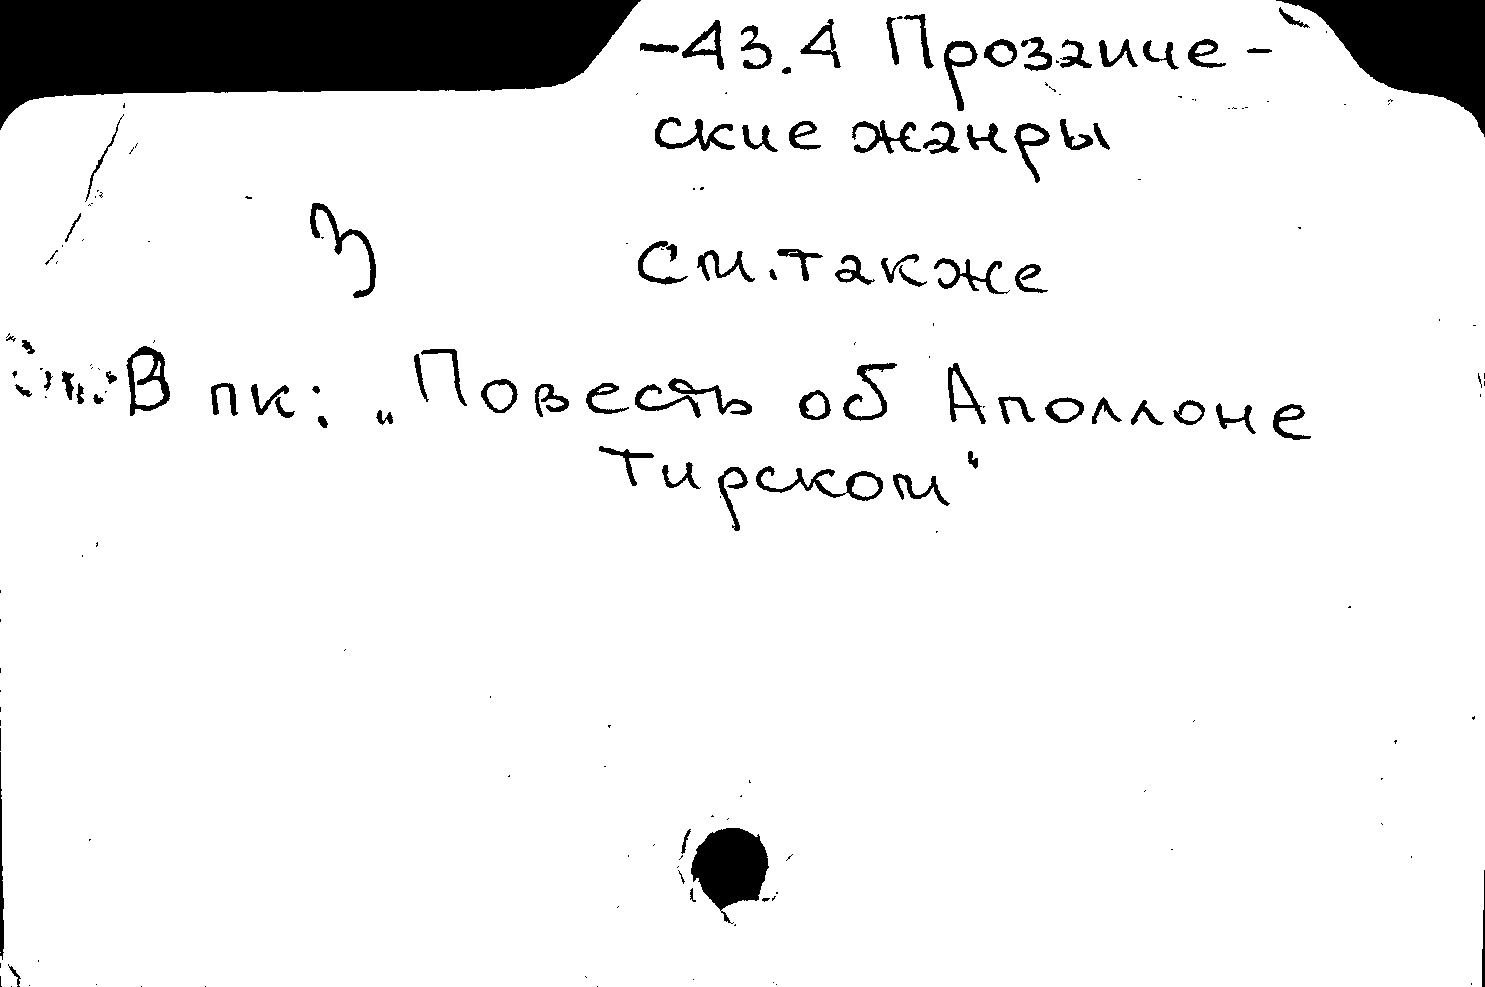 -43.4 Прозаиче-
ские жанры
З
См. также
В пк: „Повесть об Аполлоне
Тирском“